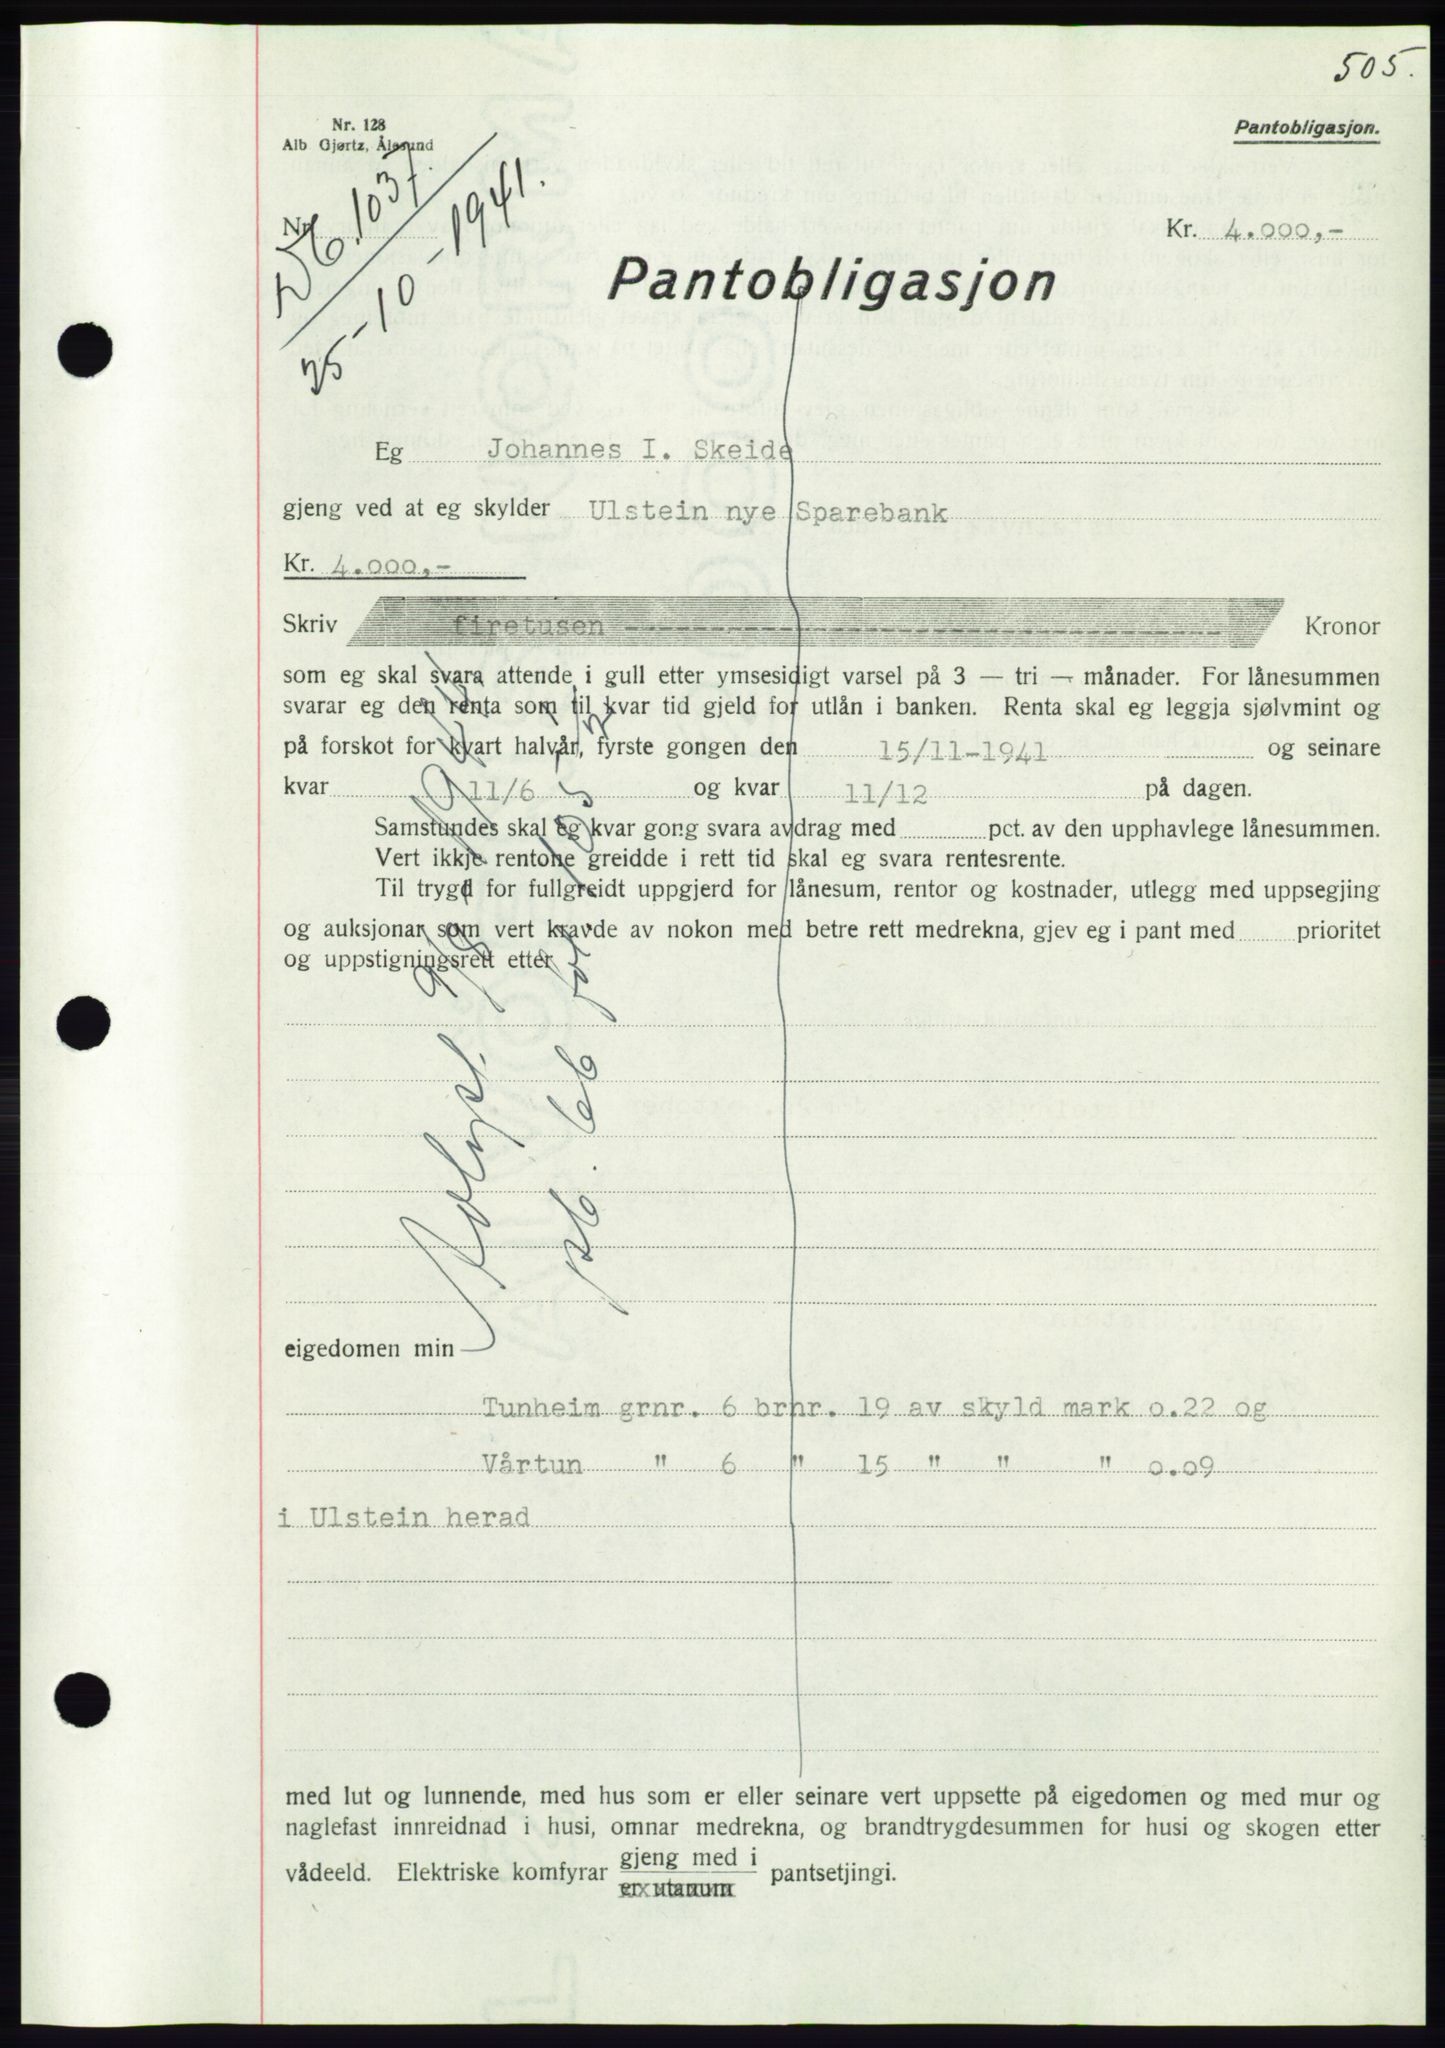 505.
Nr. 128
Alb Gjørtz, Ålesund
Pantobligasjon.
Nr.
Db. 1037.
25-10-1941.
Kr. 4.000,-
Pantobligasjon
Eg Johannes I. Skeide
gjeng ved at eg skylder Ulstein nye Sparebank
Kr. 4.000,-
Skriv firetusen ------------------------------------ Kronor
som eg skal svara attende i gull etter ymsesidigt varsel på 3 — tri — månader. For lånesummen
svarar eg den renta som til kvar tid gjeld for utlån i banken. Renta skal eg leggja sjølvmint og
på forskot for kvart halvår, fyrste gongen den 15/11-1941 og seinare
kvar 11/6 og kvar 11/12 på dagen.
Samstundes skal eg kvar gong svara avdrag med pct. av den upphavlege lånesummen.
Vert ikkje rentone greidde i rett tid skal eg svara rentesrente.
Til trygd for fullgreidt uppgjerd for lånesum, rentor og kostnader, utlegg med uppsegjing
og auksjonar som vert kravde av nokon med betre rett medrekna, gjev eg i pant med prioritet
og uppstigningsrett etter
Avlyst
pb. 6b fol
eigedomen min
Tunheim grnr. 6 brnr. 19 av skyld mark 0.22 og
Vårtun " 6 " 15 " " " 0.09
i Ulstein herad
med lut og lunnende, med hus som er eller seinare vert uppsette på eigedomen og med mur og
naglefast innreidnad i husi, omnar medrekna, og brandtrygdesummen for husi og skogen etter
vådeeld. Elektriske komfyrar gjeng med i pantsetjingi.
er utanum